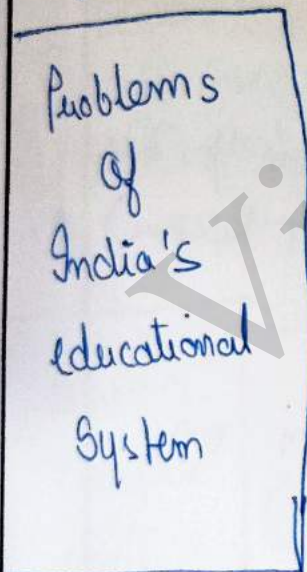 Problems
Of
India's
educational
System